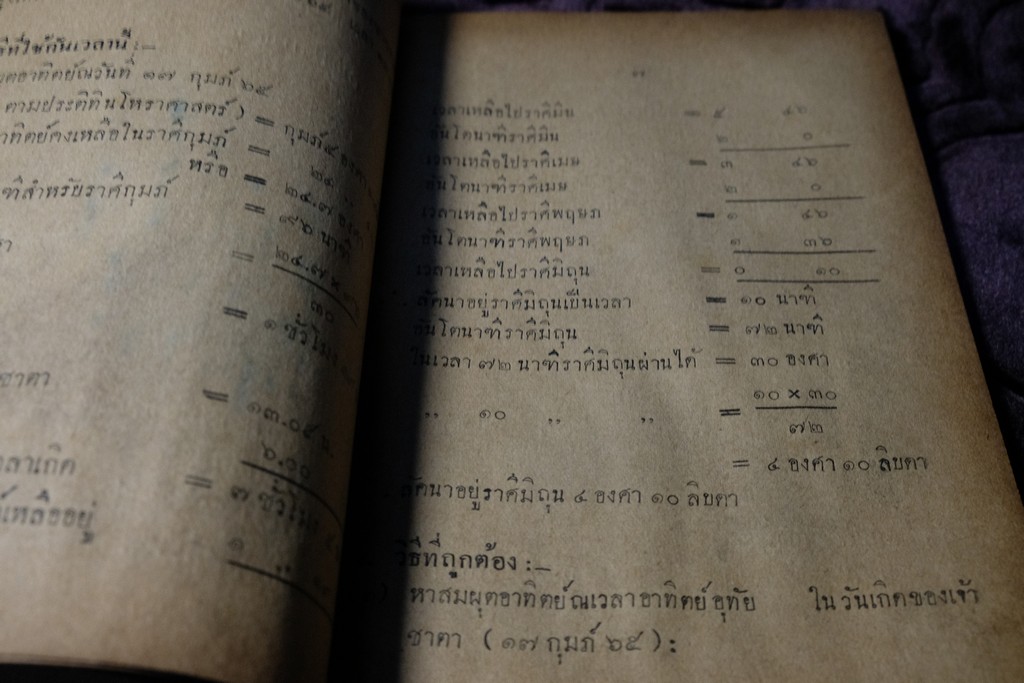 ธีที่ใช้กันเวลานี้ :—
ผุตอาทิตย์ณวันที่ ๑๗ กุมภ์ ๖๕
ตามประติทินโหราศาสตร์ ) = กุมภ์ ๕ องศา
าทิตย์คงเหลือในราศีกุมภ์ = ๒๔
หรือ = ๒๔.๗ องศา
ฑีสำหรับราศีกุมภ์ = ๙๖ นาฑี
= ๒๔.๗ ×
๓๐
= ๑ ชั่วโมง
ชาตา = ๑๓.๐๕ น.
วลาเกิด ๖.๐๐
= ๗ ชั่วโมง
์เหลืออยู่ ๑ ,,
๗
เวลาเหลือไปราศีมีน = ๕ ๔๖
อันโตนาฑีราศีมีน ๒ ๐
เวลาเหลือไปราศีเมษ = ๓ ๔๖
อันโตนาฑีราศีเมษ ๒ ๐
เวลาเหลือไปราศีพฤษภ = ๑ ๔๖
อันโตนาฑีราศีพฤษภ ๑ ๓๖
เวลาเหลือไปราศีมิถุน = ๐ ๑๐
ลัคนาอยู่ราศีมิถุนเป็นเวลา = ๑๐ นาฑี
อันโตนาฑีราศีมิถุน = ๗๒ นาฑี
ในเวลา ๗๒ นาฑีราศีมิถุนผ่านได้ = ๓๐ องศา
,, ๑๐ ,, ,, = ๑๐ × ๓๐
๗๒
= ๔ องศา ๑๐ ลิบดา
ลัคนาอยู่ราศีมิถุน ๔ องศา ๑๐ ลิบดา
วิธีที่ถูกต้อง :—
) หาสมผุตอาทิตย์ณเวลาอาทิตย์อุทัย ในวันเกิดของเจ้า
ชาตา ( ๑๗ กุมภ์ ๖๕ ) :